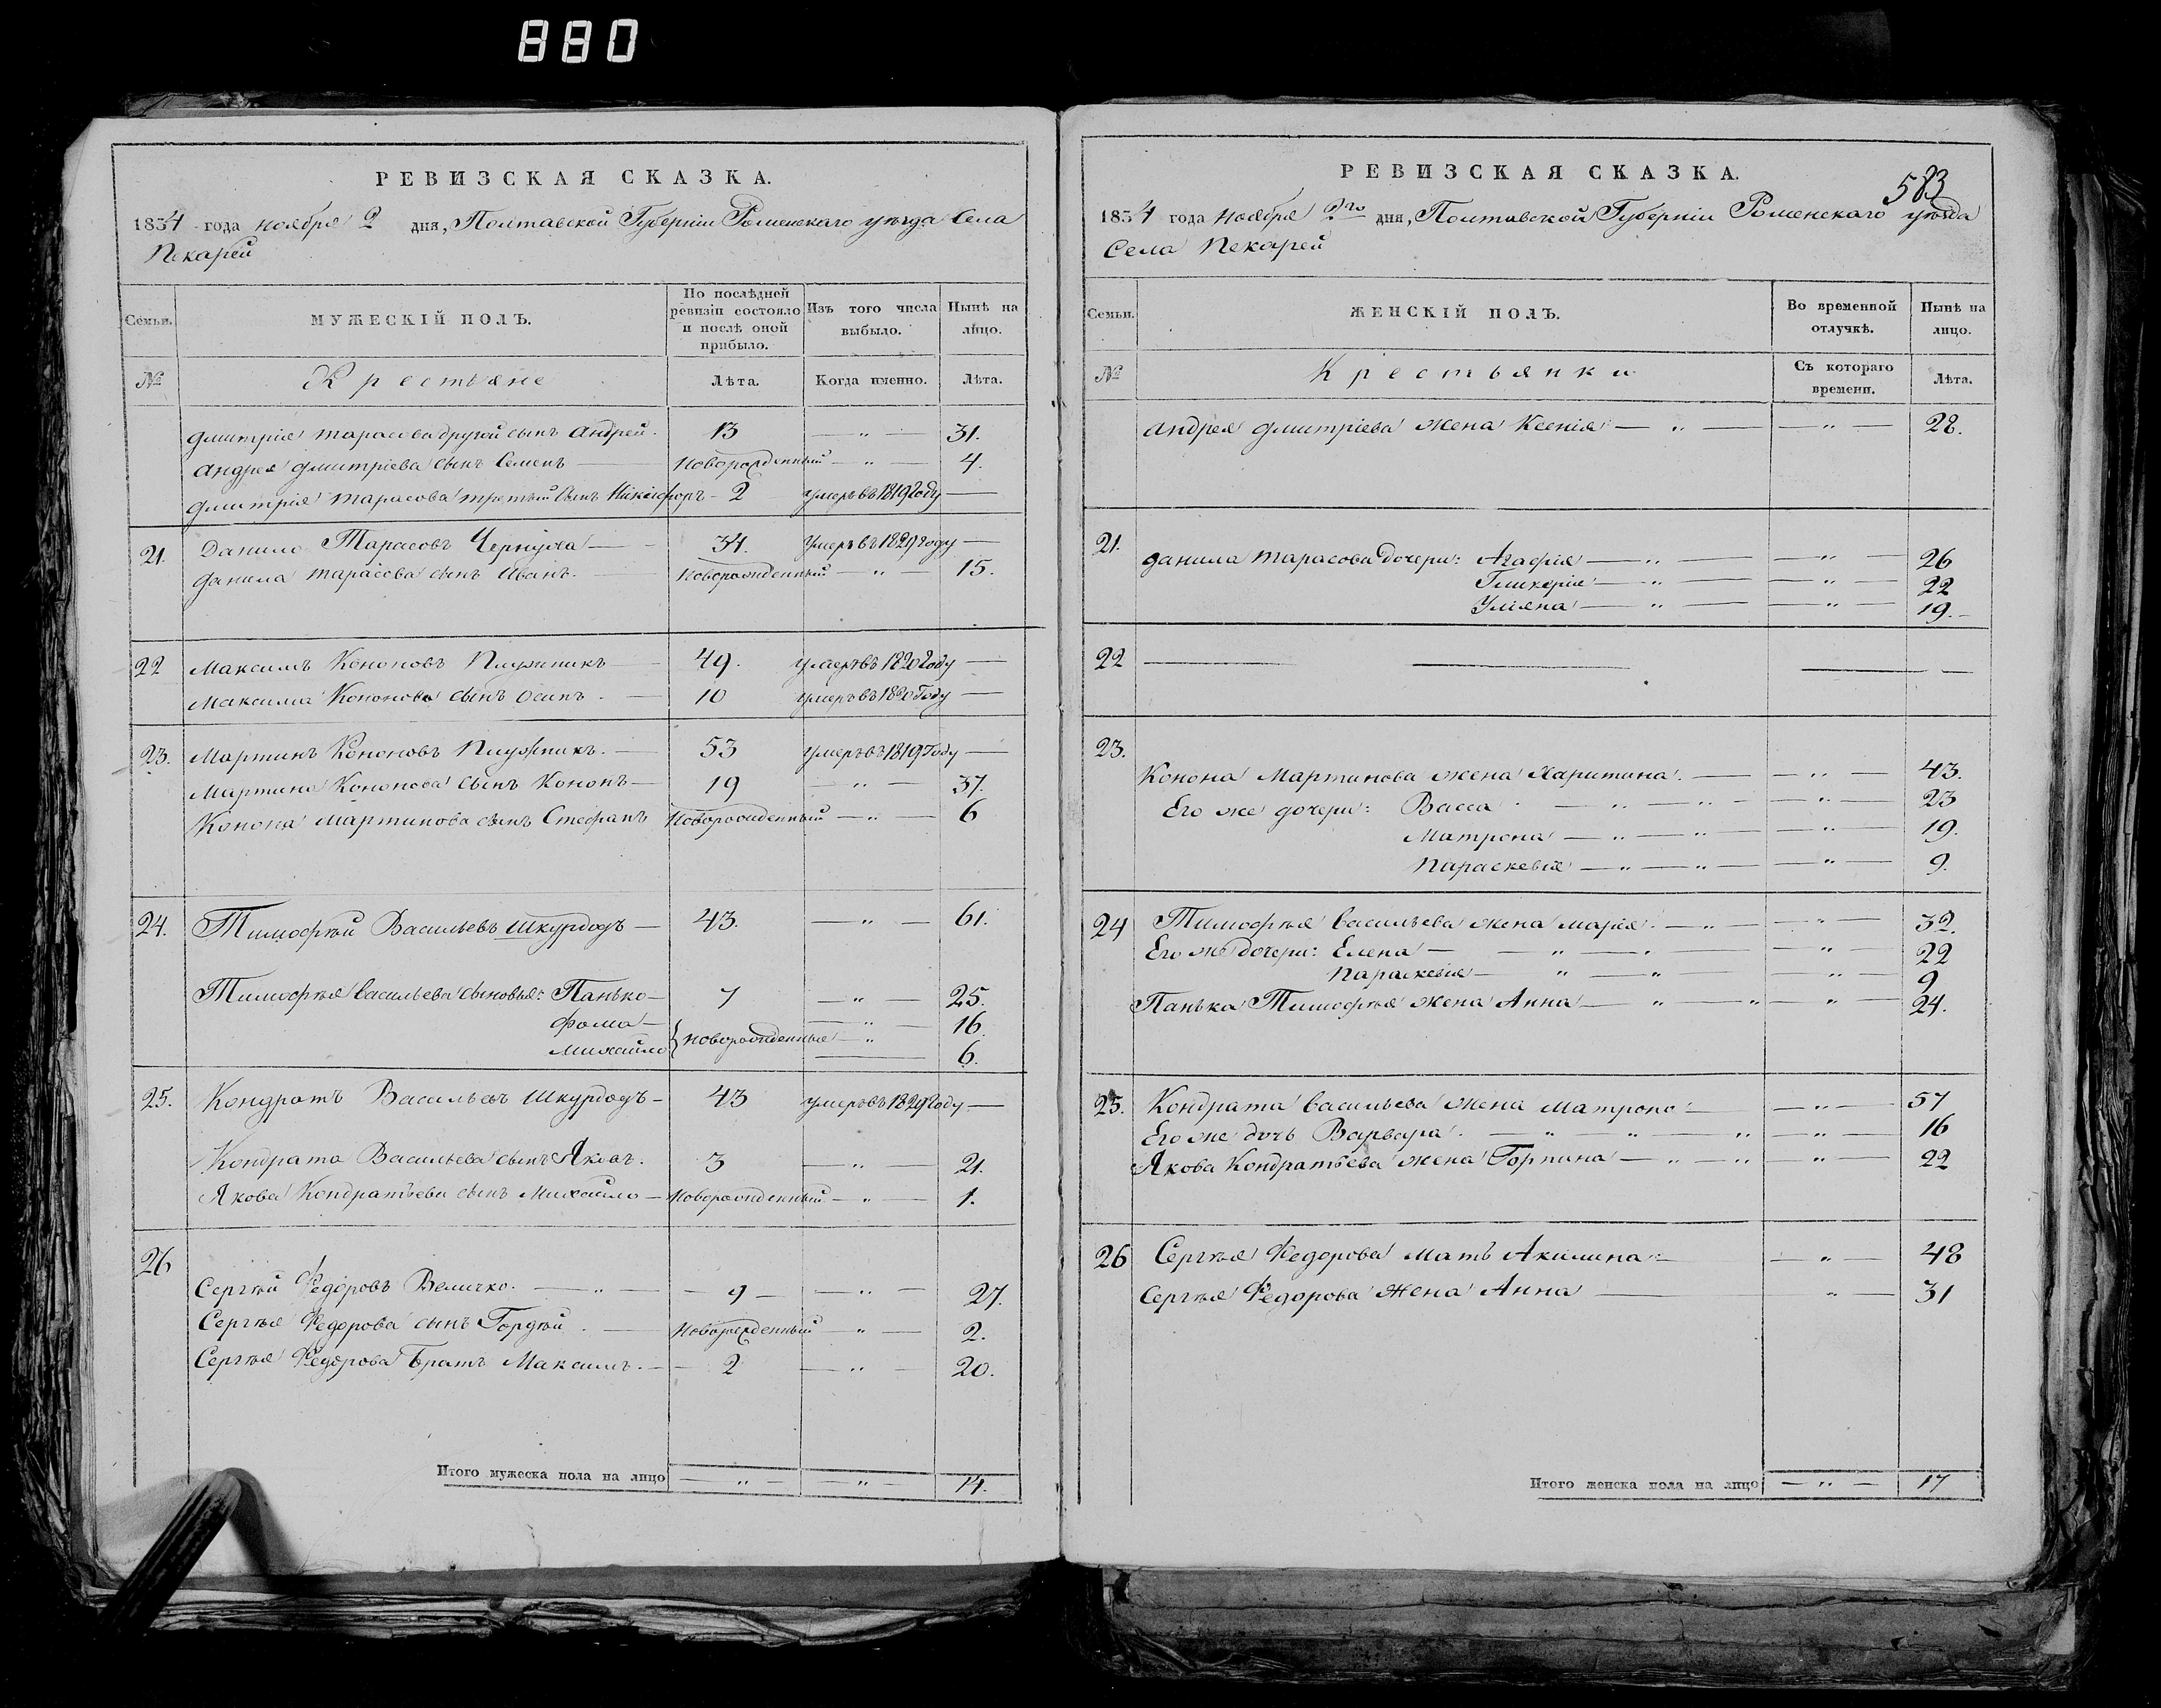 880
РЕВИЗСКАЯ СКАЗКА.
1834 года ноября 2 дня, Полтавской Губерніи Роменскаго уѣзда Села
Пекарей
Семьи.
МУЖЕСКІЙ ПОЛЪ.
По послѣдней ревизіи состояло и послѣ оной прибыло.
Изъ того числа выбыло.
Нынѣ на лицо.
№
Крестьяне
Лѣта.
Когда именно.
Лѣта.
Дмитрія Тарасова другой сынъ Андрей. 13 — „ — 31.
Андрея Дмитріева сынъ Семенъ — Новорожденный — „ — 4.
Дмитрія Тарасова третий сынъ Никифоръ — 2 умеръ въ 1819 году —
21. Данило Тарасовъ — 34. умеръ въ 1829 году —
Данила Тарасова сынъ Иванъ. — Новорожденный — „ — 15.
22 Максимъ Кононовъ Плужникъ — 49. умеръ въ 1820 году —
Максима Кононова сынъ Осипъ. — 10 умеръ въ 1820 году —
23. Мартинъ Кононовъ Плужникъ. — 53 умеръ въ 1819 году —
Мартина Кононова сынъ Кононъ — 19 — „ — 37.
Конона Мартинова сынъ Стефанъ Новорожденный — „ — 6
24. Тимофѣй Васильевъ Шкурдодъ — 43. — „ — 61.
Тимофѣя Васильева сыновья: Панько — 7 — „ — 25.
Фома — — „ — 16.
Михайло { новорожденные — „ — 6.
25. Кондратъ Васильевъ Шкурдодъ — 43 умеръ въ 1829 году. —
Кондрата Васильева сынъ Яковъ. 3 — „ — 21.
Якова Кондратьева сынъ Михайло — Новорожденный — „ — 1.
26
Сергѣй Федоровъ Величко. — „ — 9 — — „ — 27.
Сергѣя Федорова сынъ Гордѣй. — Новорожденный — „ — 2.
Сергѣя Федорова братъ Максимъ. — 2 — „ — 20.
Итого мужеска пола на лицо — „ — — „ — 14.
РЕВИЗСКАЯ СКАЗКА.
583
1834 года ноября 2го дня, Полтавской Губерніи Роменскаго уѣзда
Села Пекарей
Семьи.
ЖЕНСКІЙ ПОЛЪ.
Во временной отлучкѣ.
Нынѣ на лицо.
№
Крестьянки
Съ котораго времени.
Лѣта.
Андрея Дмитріева жена Ксенія — „ — — „ — 28.
21. Данила Тарасова дочери: Агафія — „ — — „ — 26
Гликерія — „ — — „ — 22
Уліяна — „ — — „ — 19.
22 — — — —
23.
Конона Мартинова жена Харитина. — — „ — 43.
Его же дочери: Васса — „ — „ — — „ — 23
Матрона — „ — „ — — „ — 19.
Параскевія — „ — „ — — „ — 9.
24 Тимофѣя Васильева жена Марія. — „ — — „ — 32.
Его же дочери: Елена — „ — „ — — „ — 22
Параскевія — „ — „ — — „ — 9
Панька Тимофѣя жена Анна — „ — „ — „ — 24.
25. Кондрата Васильева жена Матрона — — „ — 57
Его же дочь Варвара. — „ — „ — „ — „ — 16
Якова Кондратьева жена Горпина — „ — „ — „ — 22
26 Сергѣя Федорова мать Акилина — — „ — 48
Сергѣя Федорова жена Анна — „ — 31
Итого женска пола на лицо — „ — 17